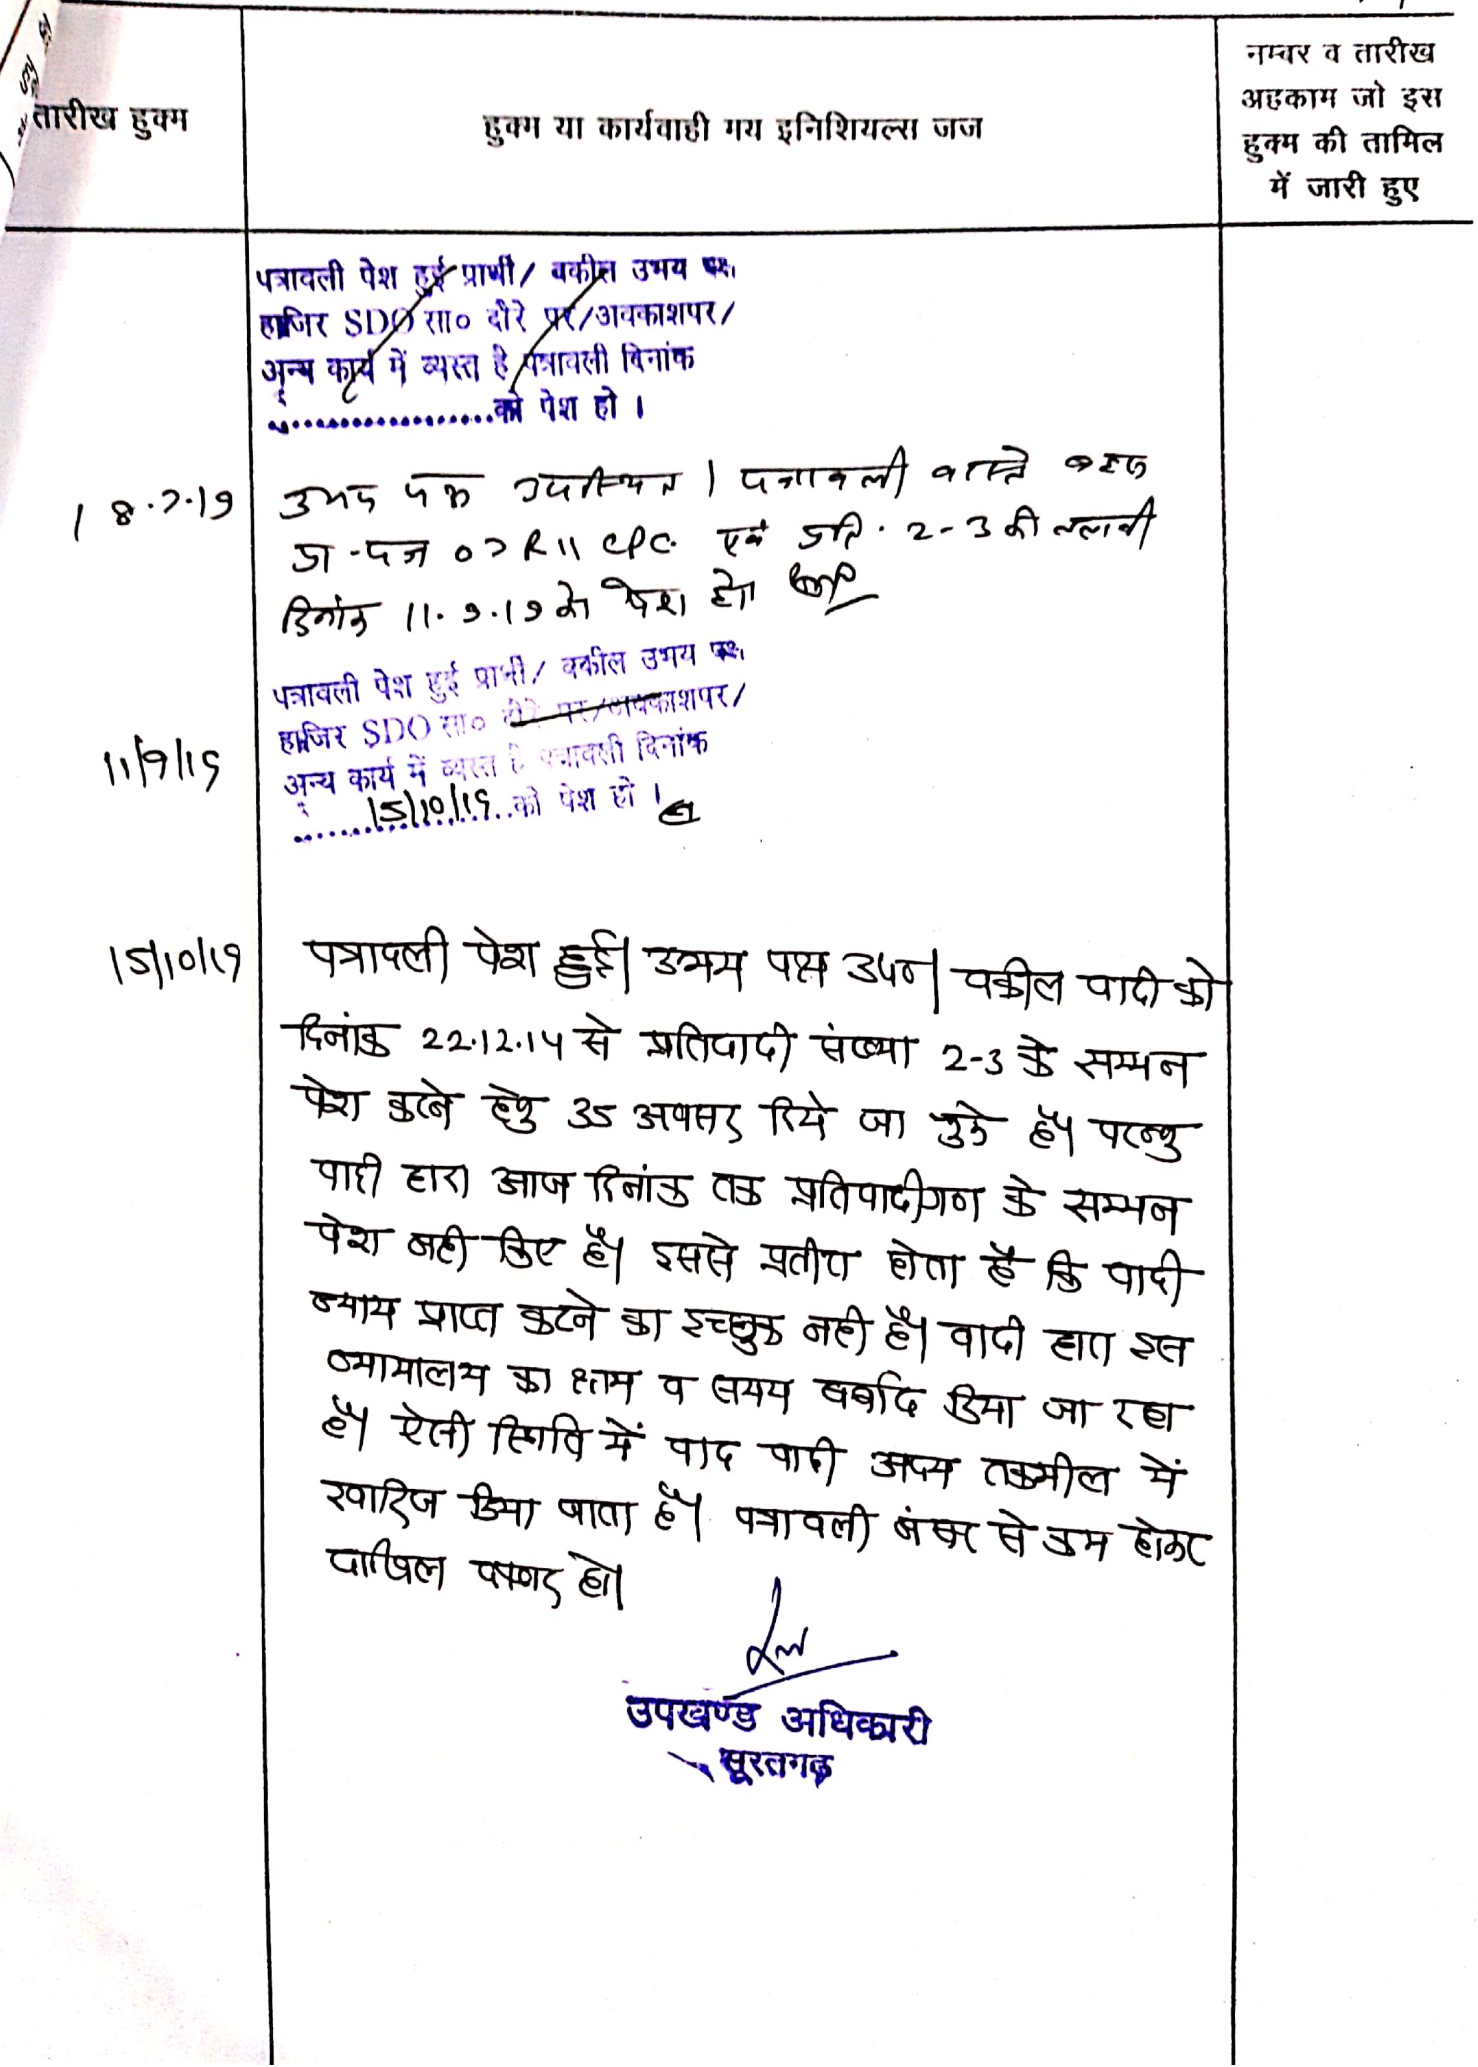 तारीख हुक्म
हुक्म या कार्यवाही मय इनिशियल्स जज
नम्बर व तारीख
अहकाम जो इस
हुक्म की तामिल
में जारी हुए
पत्रावली पेश हुई प्रार्थी/ वकील उभय पक्ष
हाजिर SDO सा० दौरे पर/अवकाशपर/
अन्य कार्य में व्यस्त है पत्रावली दिनांक
....................को पेश हो ।
18.7.19
उभय पक्ष उपस्थित । पत्रावली वास्ते बहस
प्रा.पत्र 07 R 11 CPC. एवं प्रति. 2-3 की तलबी
दिनांक 11.9.19 को पेश हो
पत्रावली पेश हुई प्रार्थी/ वकील उभय पक्ष
हाजिर SDO सा० दौरे पर/अवकाशपर/
11/9/19
अन्य कार्य में व्यस्त है पत्रावली दिनांक
15/10/19 को पेश हो ।
15/10/19
पत्रावली पेश हुई। उभय पक्ष उप०। वकील वादी को
दिनांक 22.12.14 से प्रतिवादी संख्या 2-3 के सम्मन
पेश करने हेतु 35 अवसर दिये जा चुके है। परन्तु
वादी द्वारा आज दिनांक तक प्रतिवादीगण के सम्मन
पेश नही किए है। इससे प्रतीत होता है कि वादी
न्याय प्राप्त करने का इच्छुक नही है। वादी द्वारा इस
न्यायालय का श्रम व समय बर्बाद किया जा रहा
है। ऐसी स्थिति में वाद वादी अदम तकमील में
खारिज किया जाता है। पत्रावली नंबर से कम होकर
दाखिल दफ्तर हो।
उपखण्ड अधिकारी
सूरतगढ़